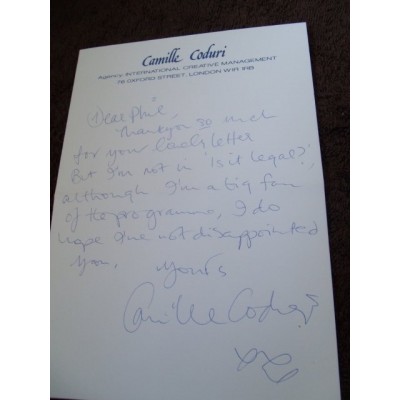 Camille Coduri
Agency: INTERNATIONAL CREATIVE MANAGEMENT
76 OXFORD STREET, LONDON W1R 1RB
Dear Phil,
Thankyou so much
for your lovely letter
But I'm not in 'Is it legal?',
although I'm a big fan
of the programme, I do
hope I've not disappointed
you.
Yours
Camille Coduri
xx